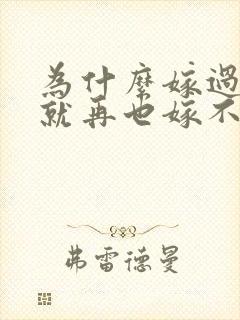 為什麼嫁過
就再也嫁不
弗雷德曼